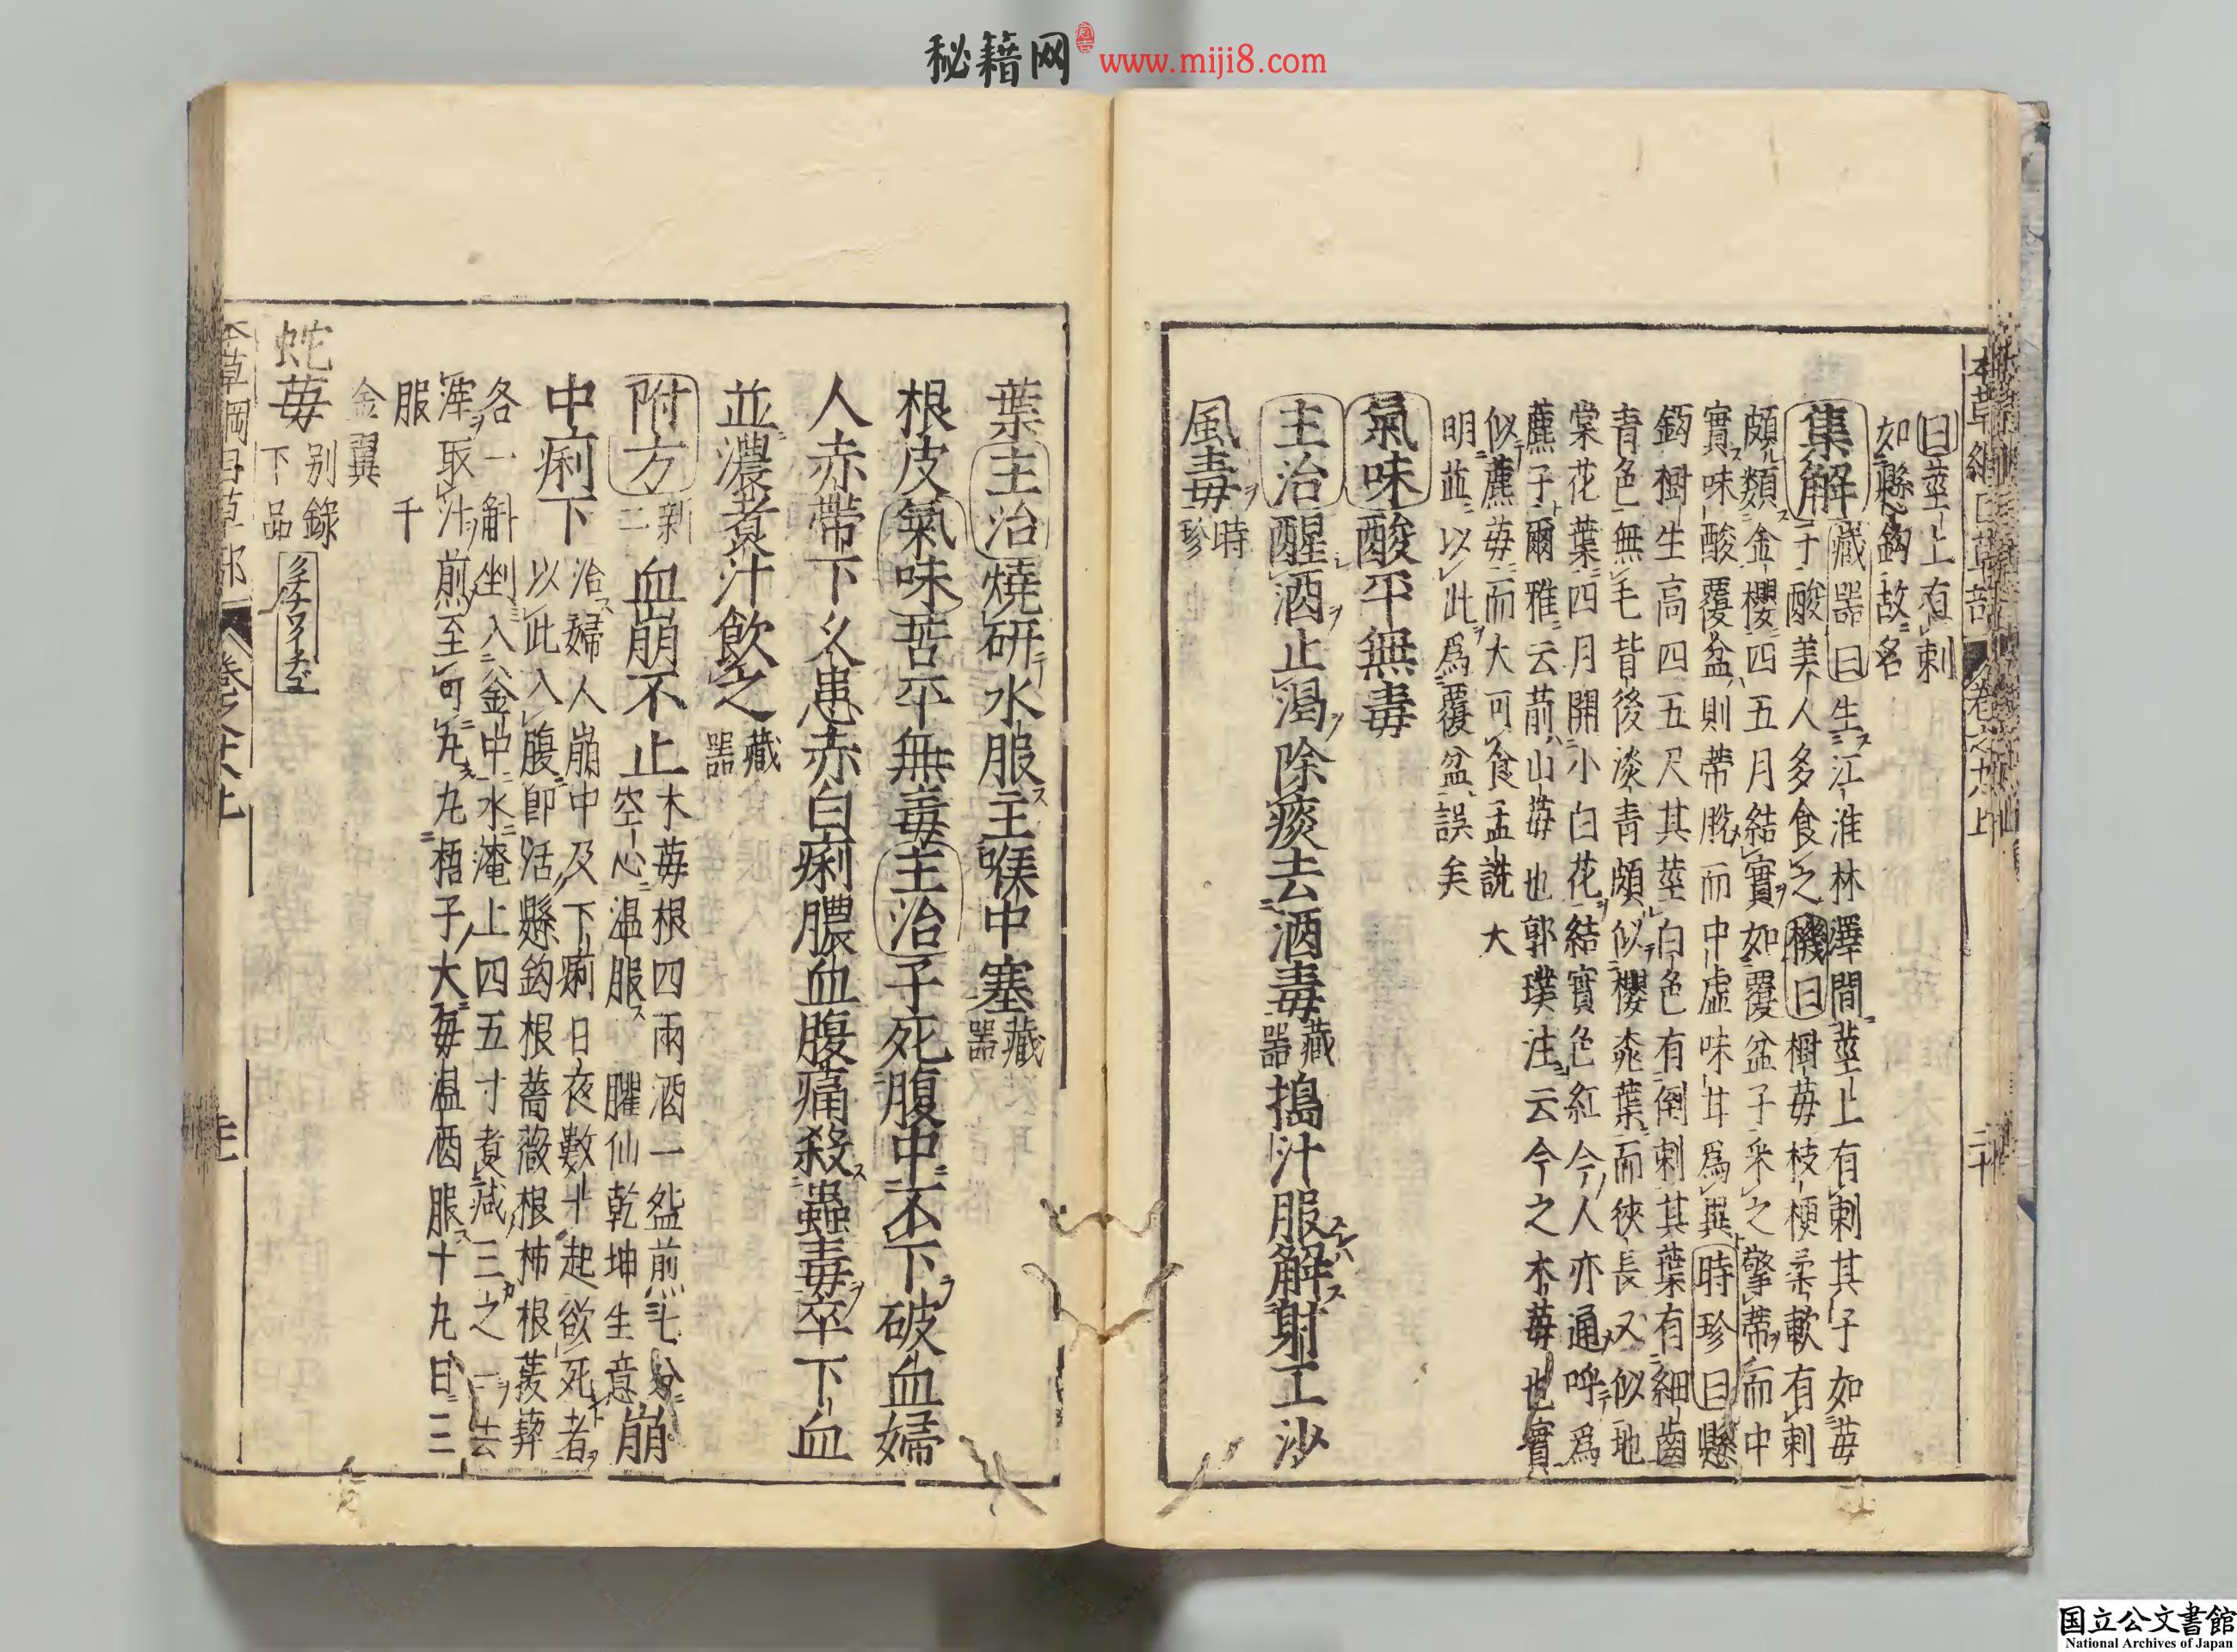 秘籍网 www.miji8.com
曰莖上有刺
如懸鈎故名
集解藏器曰生江淮林澤間莖上有刺其子如莓
子酸美人多食之機曰樹莓枝梗柔軟有刺
頗類金櫻四五月結實如覆盆子采之擎蒂而中
實味酸覆盆則蒂脫而中虛味甘爲異時珍曰懸
鈎樹生高四五尺其莖白色有倒刺其葉有細齒
青色無毛背後淡青頗似櫻桃葉而狹長又似地
棠花葉四月開小白花結實色紅今人亦通呼爲
藨子爾雅云葥山莓也郭璞注云今之木莓也實
似藨莓而大可食孟詵大
明並以此爲覆盆誤矣
氣味酸平無毒
主治醒酒止渴除痰去酒毒藏器擣汁服解射工沙
風毒時珍
葉主治燒研水服主喉中塞藏器
根皮氣味苦平無毒主治子死腹中不下破血婦
人赤帶下久患赤白痢膿血腹痛殺蟲毒卒下血
並濃煮汁飲之藏器
附方新二血崩不止木莓根四兩酒一盌煎七分空心温服臞仙乾坤生意崩
中痢下治婦人崩中及下痢日夜數十起欲死者
以此入腹即活懸鈎根薔薇根柿根菝葜
各一斛剉入釜中水淹上四五寸煮減三之一去
滓取汁煎至可丸丸梧子大每温酒服十丸日三
服 千
金翼
蛇莓别錄下品
国立公文書館
National Archives of Japan